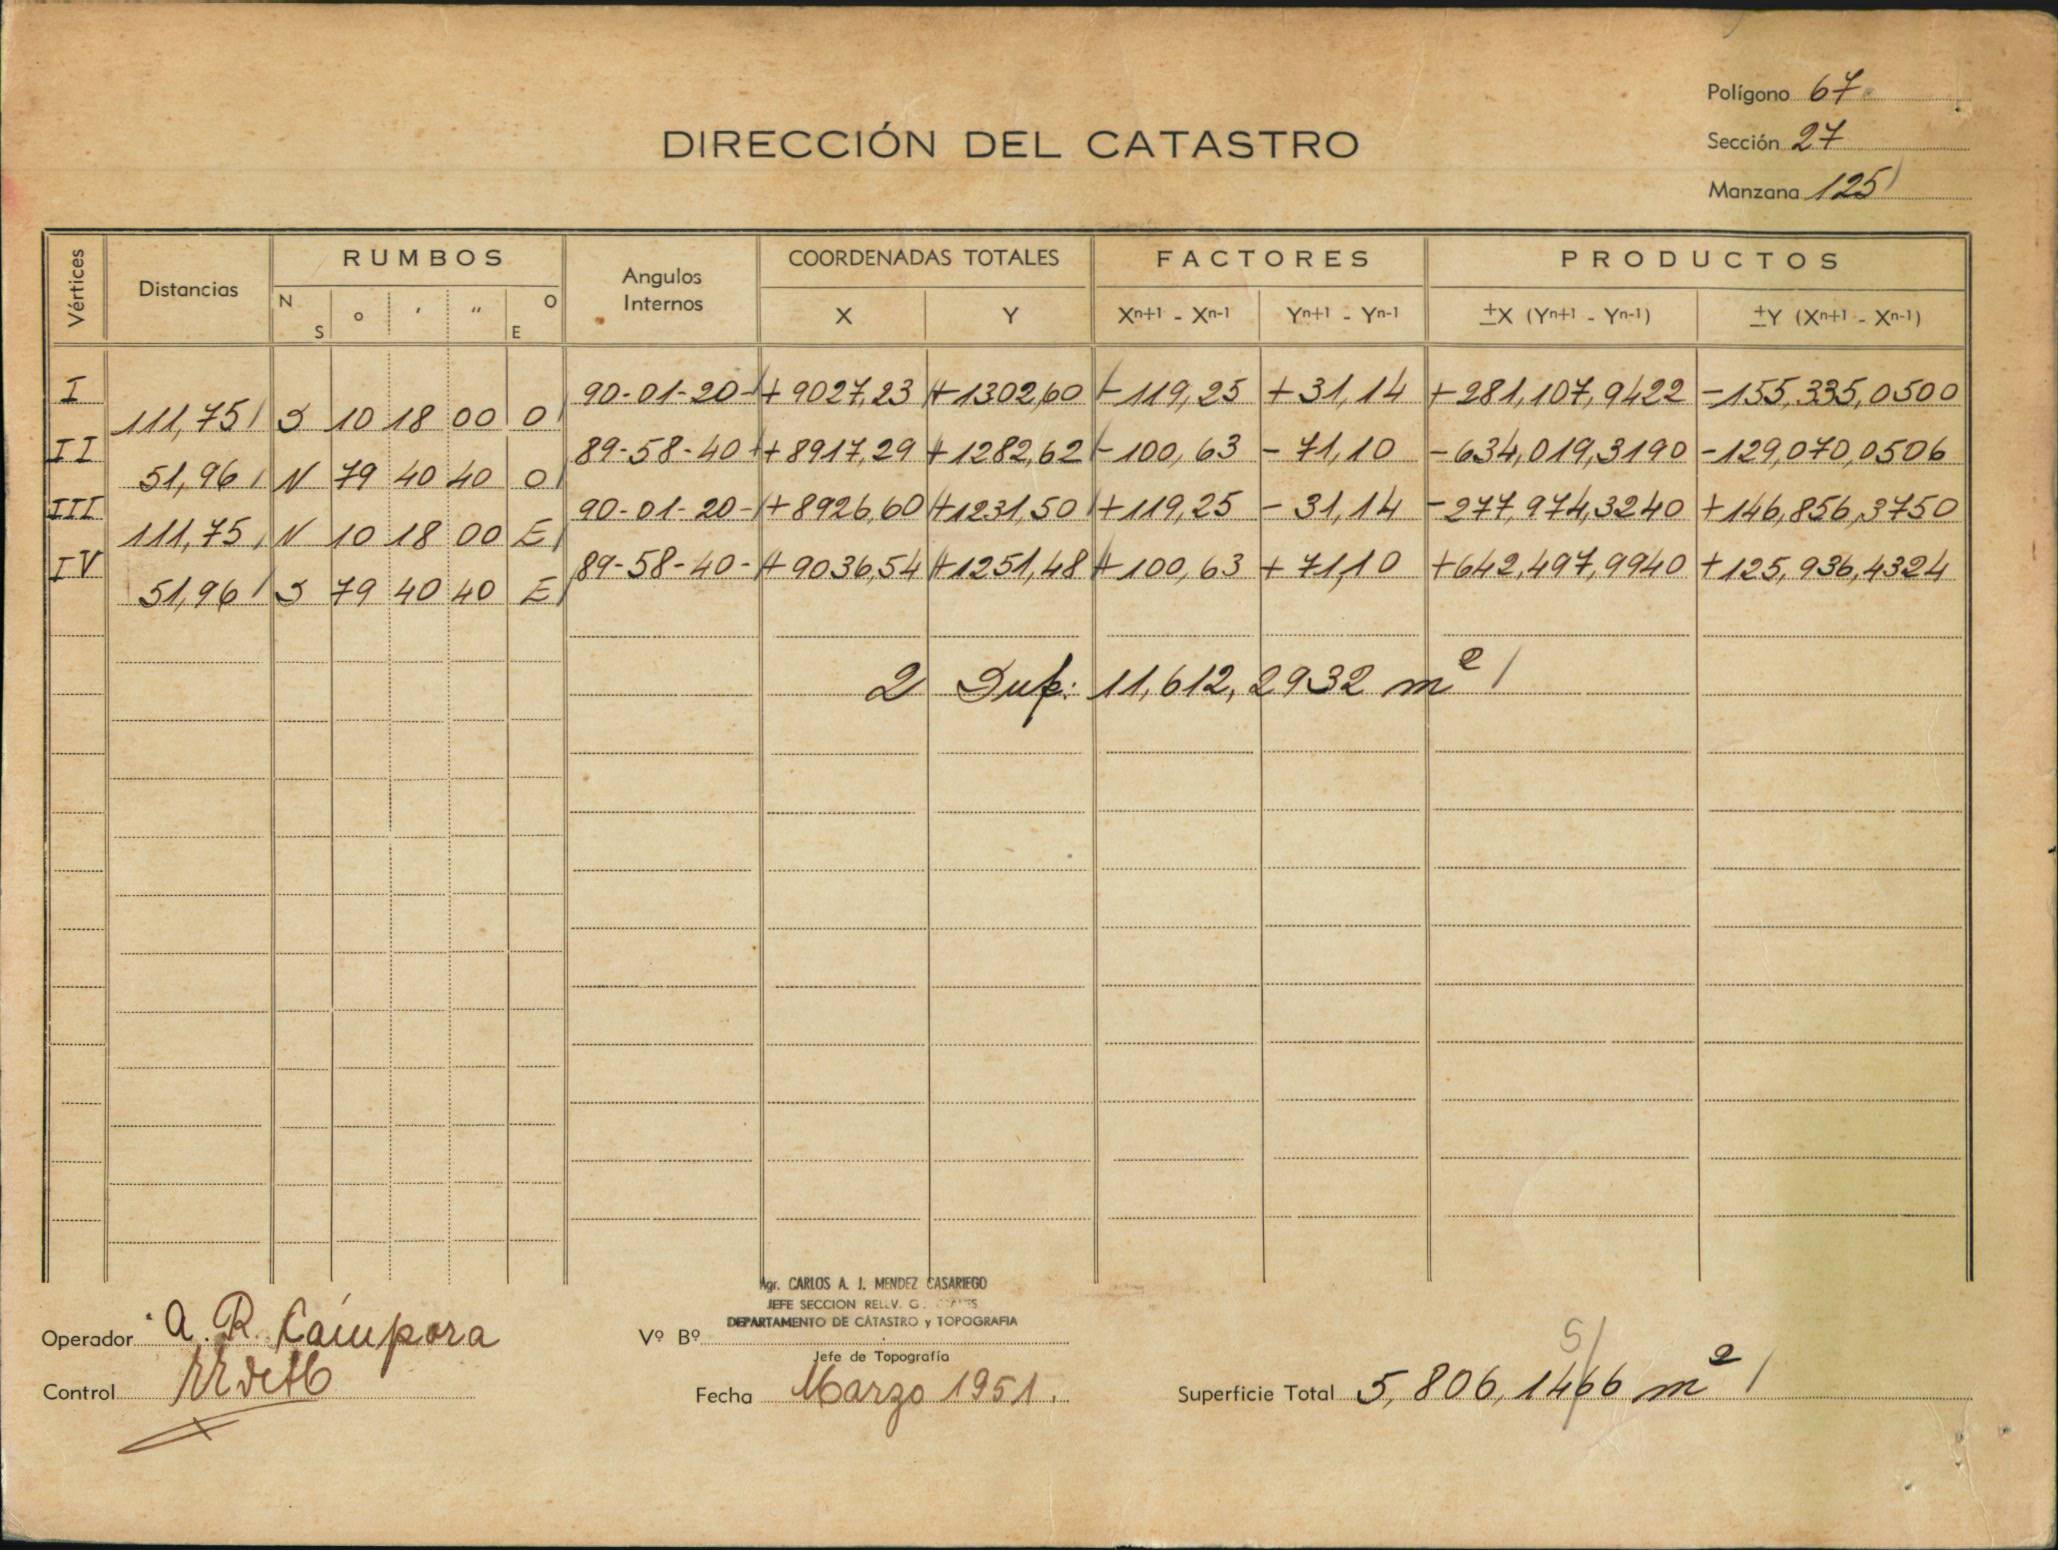 Polígono 67
DIRECCIÓN DEL CATASTRO
Sección 27
Manzana 125
Vértices Distancias RUMBOS Angulos Internos COORDENADAS TOTALES FACTORES PRODUCTOS
N S ° ' " O E X Y Xn+1 - Xn-1 Yn+1 - Yn-1 ±X (Yn+1 - Yn-1) ±Y (Xn+1 - Xn-1)
I 90-01-20- +9027,23 +1302,60 -119,25 +31,14 +281,107,9422 -155,335,0500
111,75 S 10 18 00 O
II 89-58-40 +8917,29 +1282,62 -100,63 -71,10 -634,019,3190 -129,070,0506
51,96 N 79 40 40 O
III 90-01-20- +8926,60 +1231,50 +119,25 -31,14 -277,974,3240 +146,856,3750
111,75 N 10 18 00 E
IV 89-58-40- +9036,54 +1251,48 +100,63 +71,10 +642,497,9940 +125,936,4324
51,96 S 79 40 40 E
2 Sup: 11,612,2932 m2
Agr. CARLOS A. J. MENDEZ CASARIEGO
JEFE SECCION RELEV.
DEPARTAMENTO DE CATASTRO y TOPOGRAFIA
Operador A. R. Cámpora
Vº Bº
Jefe de Topografía
Control
Fecha Marzo 1951.
5
Superficie Total 5,806,1466 m2